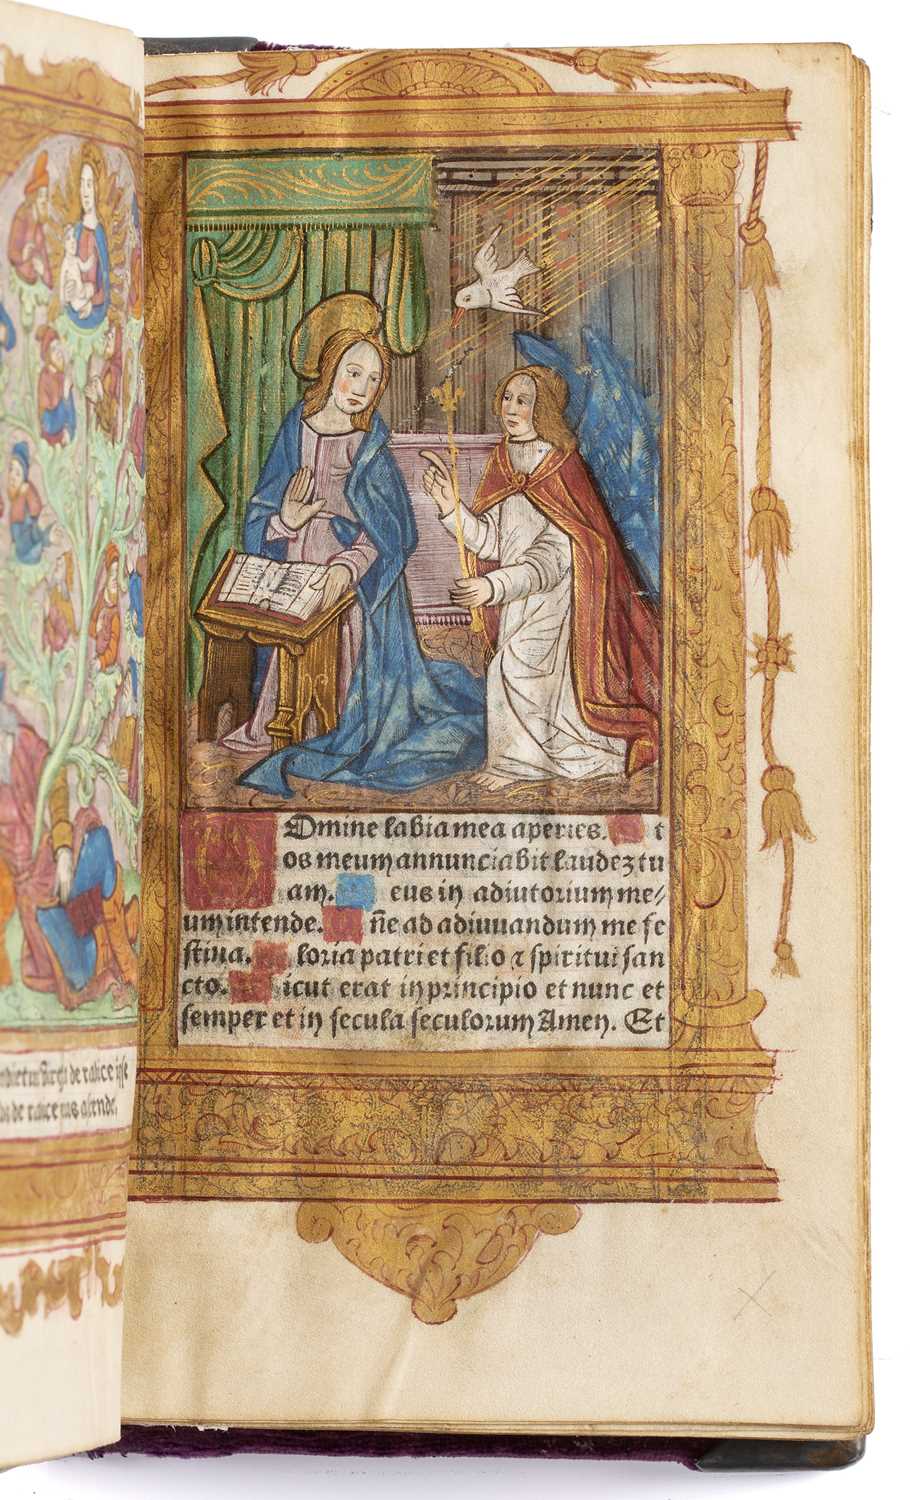 ndictus fructus de radice iesse
de radice eius ascende.
Domine labia mea aperies. Et
os meum annunciabit laudeʒ tu
am. Deus in adiutorium me⸗
um intende. Dñe ad adiuuandum me fe
stina. Gloria patri et filio ⁊ spiritui san
cto. Sicut erat in principio et nunc et
semper et in secula seculorum Amen. Et